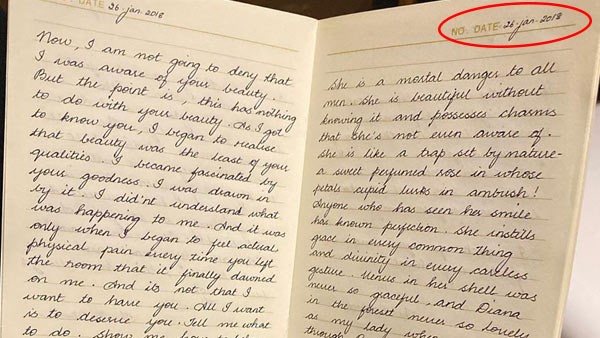 DATE 26-jan. 2018
Now, I am not going to deny that
I was aware of your beauty.
But the point is, this has nothing
to do with your beauty. As I got
to know you, I began to realise
that beauty was the least of your
qualities. I became fassinated by
your goodness. I was drawn in
by it. I did'nt understand what
was happening to me. And it was
only when I began to feel actual
physical pain every time you left
the room that it finally dawned
on me. And its not that I
want to have you. All I want
is to deserve you. Tell me what
to do. Show me how to
NO. DATE 26-jan-2018
She is a mortal danger to all
men. She is beautiful without
knowing it and possesses charms
that she's not even aware of.
She is like a trap set by nature-
a sweet perfumed rose in whose
petals cupid lurks in ambush!
Anyone who has seen her smile
has known perfection. She instills
grace in every common thing
and divinity in every careless
gesture. Venus in her shell was
never so graceful, and Diana
in the forest never so lovely
as my lady when
through